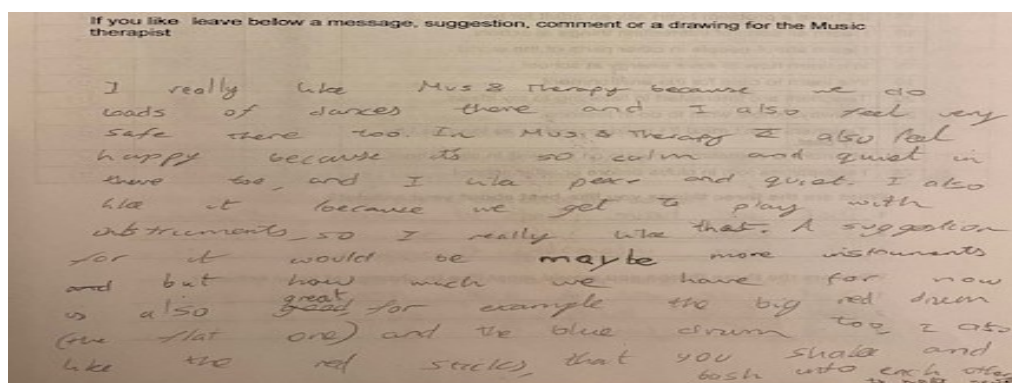 If you like leave below a message, suggestion, comment or a drawing for the Music
therapist
I really like Mus & Therapy because we do
loads of dances there and I also feel very
safe there too. In Mus & Therapy I also feel
happy because its so calm and quiet in
there too, and I like peace and quiet. I also
like it because we get to play with
instruments, so I really like that. A suggestion
for it would be maybe more instruments
and but how much we have for now
is also good great for example the big red drum
(the flat one) and the blue drum too, I also
like the red sticks, that you shake and
bash into each other